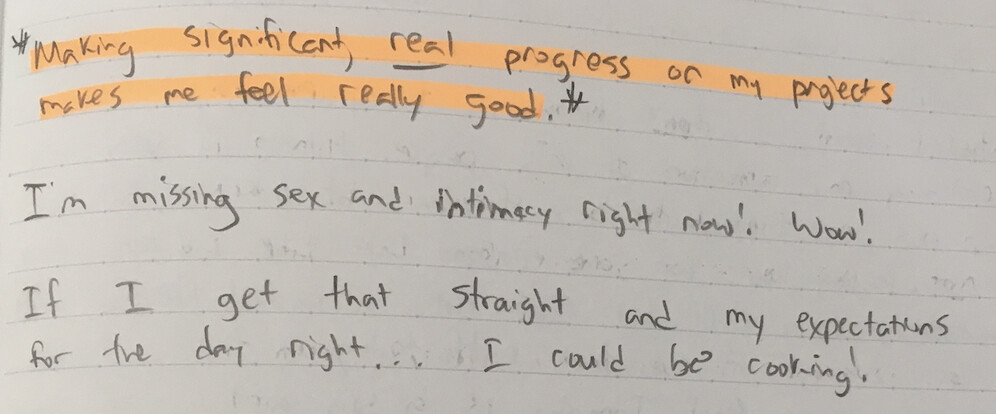 *Making significant, real progress on my projects
makes me feel really good.*
I'm missing sex and intimacy right now! Wow!
If I get that straight and my expectations
for the day right... I could be cooking!